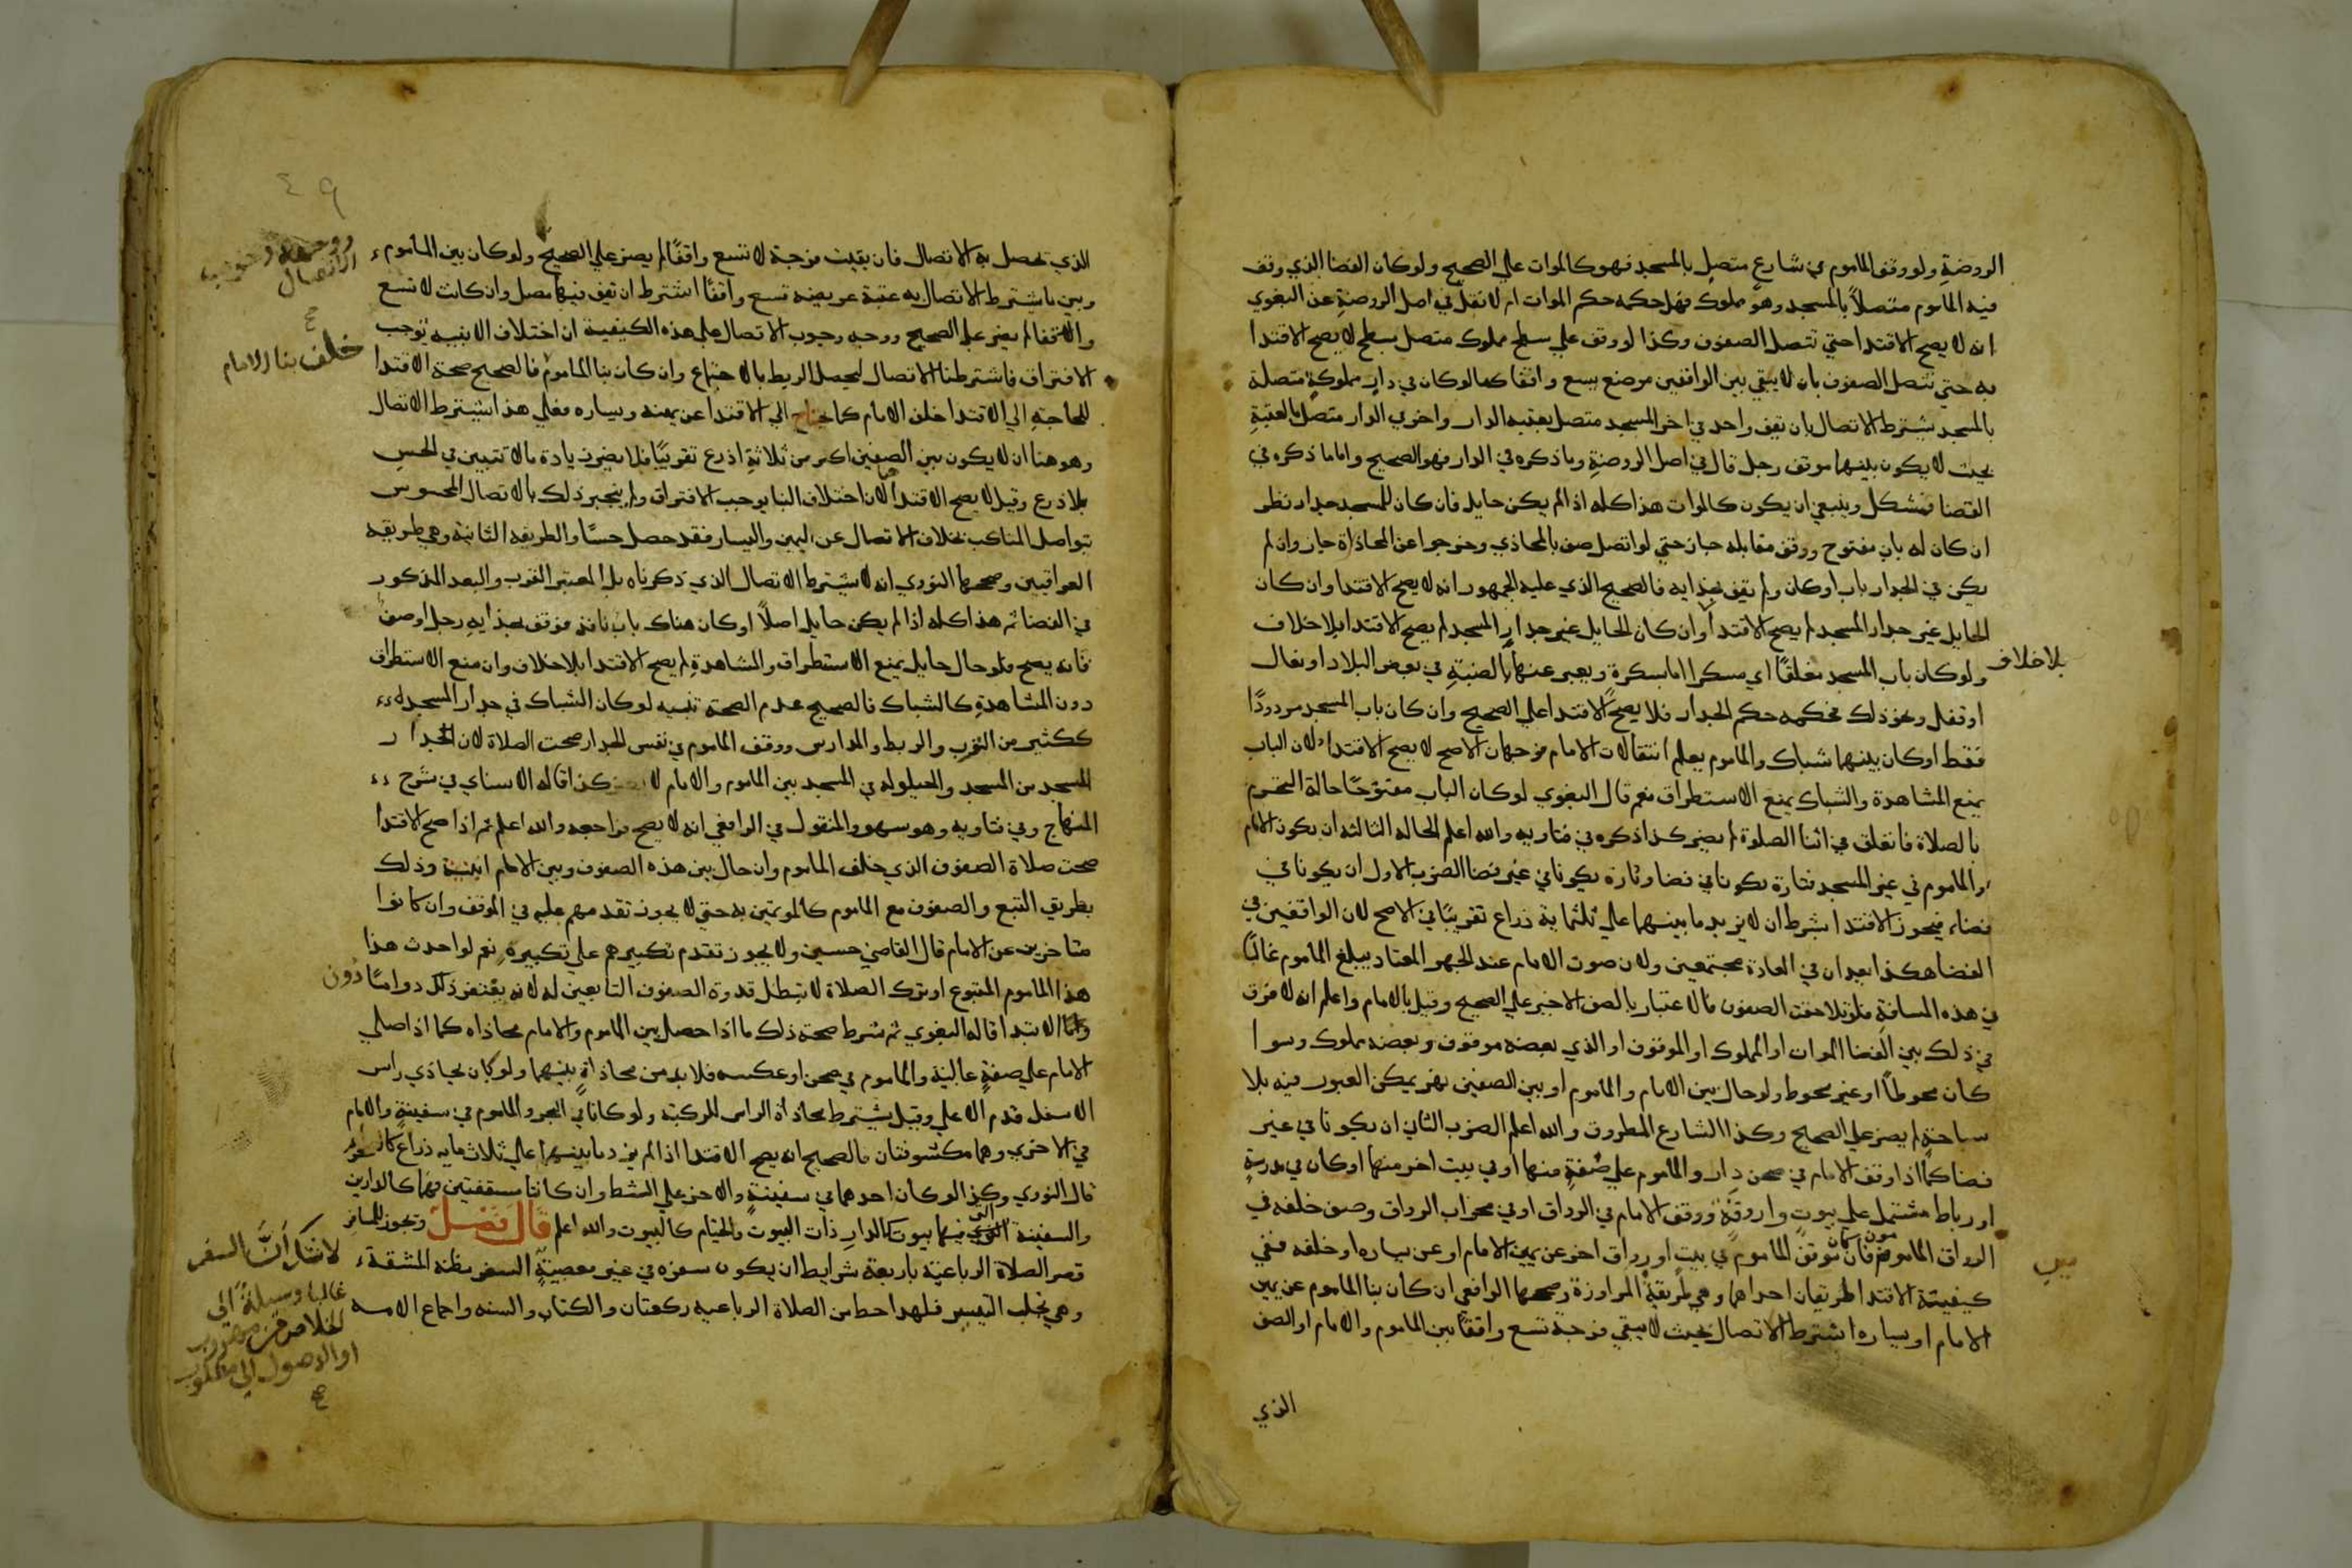 الروضة ولو وقف الماموم في شارع متصل بالمسجد فهو كالموات علي الصحيح ولو كان الفضا الذي وقف
فيه الماموم متصلاً بالمسجد وهو مملوك فهل حكمه حكم الموات ام لا نقل في اصل الروضة عن البغوي
انه لا يصح الاقتدا حتي تتصل الصفوف وكذا لو وقف علي سطح مملوك متصل بسطح لا يصح الاقتدا
به حتي تتصل الصفوف بان لا يبقي بين الواقفين موضع يسع واقفا كما لو كان في دار مملوكة متصلة
بالمسجد يشترط الاتصال بان يقف واحد في اخر المسجد متصل بعتبه الدار واخر في الدار متصل بالعتبة
بحيث لا يكون بينهما موقف رجل قال في اصل الروضة وما ذكره في الدار فهو الصحيح واما ما ذكره في
الفضا فمشكل وينبغي ان يكون كالموات هذا كله اذا لم يكن حايل فان كان للمسجد جدار نظر
ان كان له باب مفتوح ووقف مقابله جاز حتي لو اتصل صف بالمحاذي وخرجوا عن المحاذاة جاز وان لم
يكن في الجدار باب او كان ولم يقف بحذايه فالصحيح الذي عليه الجمهور انه لا يصح الاقتدا وان كان
الحايل غير جدار المسجد لم يصح الاقتدا وان كان الحايل غير جدار المسجد لم يصح الاقتدا بلا خلاف
بلا خلاف
ولو كان باب المسجد مغلقًا اي مسكرا اما بسكرة ويعبر عنها بالضبة في بعض البلاد او بغال
او قفل ونحو ذلك فحكمه حكم الجدار فلا يصح الاقتدا علي الصحيح وان كان باب المسجد مردودًا
فقط او كان بينهما شباك والماموم يعلم انتقالات الامام فوجهان الاصح لا يصح الاقتدا لان الباب
يمنع المشاهدة والشباك يمنع الاستطراق نعم قال البغوي لو كان الباب مفتوحًا حالة التحرم
بالصلاة فانغلق في اثنا الصلوة لم يضر كذا ذكره في فتاويه والله اعلم الحاله الثالثه ان يكون الامام
والماموم في غير المسجد فتارة يكونان في فضا وتارة يكونان في غير فضا الضرب الاول ان يكونا في
فضاء فيجوز الاقتدا بشرط ان لا يزيد ما بينهما علي ثلثماية ذراع تقريبًا في الاصح لان الواقفين في
الفضا هكذا يعدان في العادة مجتمعين ولان صوت الامام عند الجهر المعتاد يبلغ الماموم غالبًا
في هذه المسافة فلو تلاحقت الصفوف فالاعتبار بالصف الاخير علي الصحيح وقيل بالامام واعلم انه لا فرق
في ذلك بين الفضا الموات او المملوك او الموقوف او الذي بعضه موقوف وبعضه مملوك وسوا
كان محوطًا او غير محوط ولو حال بين الامام والماموم او بين الصفين نهر يمكن العبور فيه بلا
سباحة لم يضر علي الصحيح وكذا الشارع المطروق والله اعلم الضرب الثاني ان يكونا في غير
فضا كما اذا وقف الامام في صحن دار والماموم علي صفة منها او في بيت اخر منها او كان في مدرسة
او رباط مشتمل علي بيوت واروقة ووقف الامام في الرواق او في محراب الرواق وصف خلفه في
الرواق المامومون فان كان موقف الماموم في بيت او رواق اخر عن يمين الامام او عن يساره او خلفه ففي
كيفية الاقتدا طريقان احداهما وهي طريقة المراوزة وصححها الرافعي ان كان بنا الماموم عن يمين
الامام او يساره اشترط الاتصال بحيث لا يبقي فرجة تسع واقفًا بين الماموم والامام او الصف
الذي
٤٩
الذي تحصل به الاتصال فان بقيت فرجة لا تسع واقفًا لم يضر علي الصحيح ولو كان بين الماموم
وبين ما يشترط الاتصال به عتبة عريضه تسع واقفًا اشترط ان يقف فيها مصل وان كانت لا تسع
واقفا لم يضر علي الصحيح ووجه وجوب الاتصال علي هذه الكيفية ان اختلاف الابنيه توجب
خلف بنا الامام
الافتراق فاشترطنا الاتصال ليحصل الربط بالاجتماع وان كان بنا الماموم فالصحيح صحة الاقتدا
للحاجة الي الاقتدا خلف الامام كما يحتاج الي الاقتدا عن يمينه ويساره فعلي هذا يشترط الاتصال
وهو هنا ان لا يكون بين الصفين اكثر من ثلاثة اذرع تقريبًا فلا يضر زيادة ما لا تتبين في الحس
بلا ذرع وقيل لا يصح الاقتدا لان اختلاف البنا يوجب الافتراق ولم ينجبر ذلك بالاتصال المحسوس
بتواصل المناكب بخلاف الاتصال عن اليمين واليسار فقد حصل حسًا والطريقه الثانية وهي طريقه
العراقيين وصححها النووي انه لا يشترط الاتصال الذي ذكرناه بل المعتبر القرب والبعد المذكور
في الفضا ثم هذا كله اذا لم يكن حايل اصلاً او كان هناك باب نافذ فوقف بحذايه رجل او صف
فانه يصح فلو حال حايل يمنع الاستطراق والمشاهدة لم يصح الاقتدا بلا خلاف وان منع الاستطراق
دون المشاهدة كالشباك فالصحيح عدم الصحة تنبيه لو كان الشباك في جدار المسجد
ككثير من الترب والربط والمدارس ووقف الماموم في نفس الجدار صحت الصلاة لان الجدار
المسجد من المسجد والحيلوله في المسجد بين الماموم والامام لا تضر كذا قاله الاسناي في شرح
المنهاج وفي فتاويه وهو سهو والمنقول في الرافعي انه لا يصح فراجعه والله اعلم ثم اذا صح الاقتدا
صحت صلاة الصفوف الذي خلف الماموم وان حال بين هذه الصفوف وبين الامام ابنية وذلك
بطريق التبع والصفوف مع الماموم كالمومين به حتي لا يجوز تقدمهم عليه في الموقف وان كانوا
متاخرين عن الامام قال القاضي حسين ولا يجوز تقدم تكبيرهم علي تكبيره نعم لو احدث هذا
هذا الماموم المتبوع او ترك الصلاة لا تبطل قدوة الصفوف التابعين له لانه يغتفر ذلك دوامًا دون
الابتدا قاله البغوي ثم شرط صحة ذلك ما اذا حصل بين الماموم والامام محاذاه كما اذا صلي
الامام علي صفة عالية والماموم في صحن او عكسه فلا بد من محاذاة بينهما ولو كان يحاذي راس
الاسفل قدم الاعلي وقيل يشترط محاذاة الراس للركبة ولو كانا في البحر والماموم في سفينة والامام
في الاخري وهما مكشوفتان فالصحيح انه يصح الاقتدا اذا لم يزد ما بينهما علي ثلاث مايه ذراع
قال النووي وكذا لو كان احدهما في سفينة والاخر علي الشط وان كانتا مسقفتين فهما كالدارين
والسفينة التي فيها بيوت كالدار ذات البيوت والخيام كالبيوت والله اعلم قال فصل وتجوز للمسافر
قصر الصلاة الرباعية باربعة شرايط ان يكون سفره في غير معصية السفر مظنه المشقة
وهي تجلب التيسير فلهذا حط من الصلاة الرباعيه ركعتان والكتاب والسنه واجماع الامه
لا شك أنَّ السفر
غالبا وسيلة الي
الخلاص من مهروب
او الوصول الي مطلوب